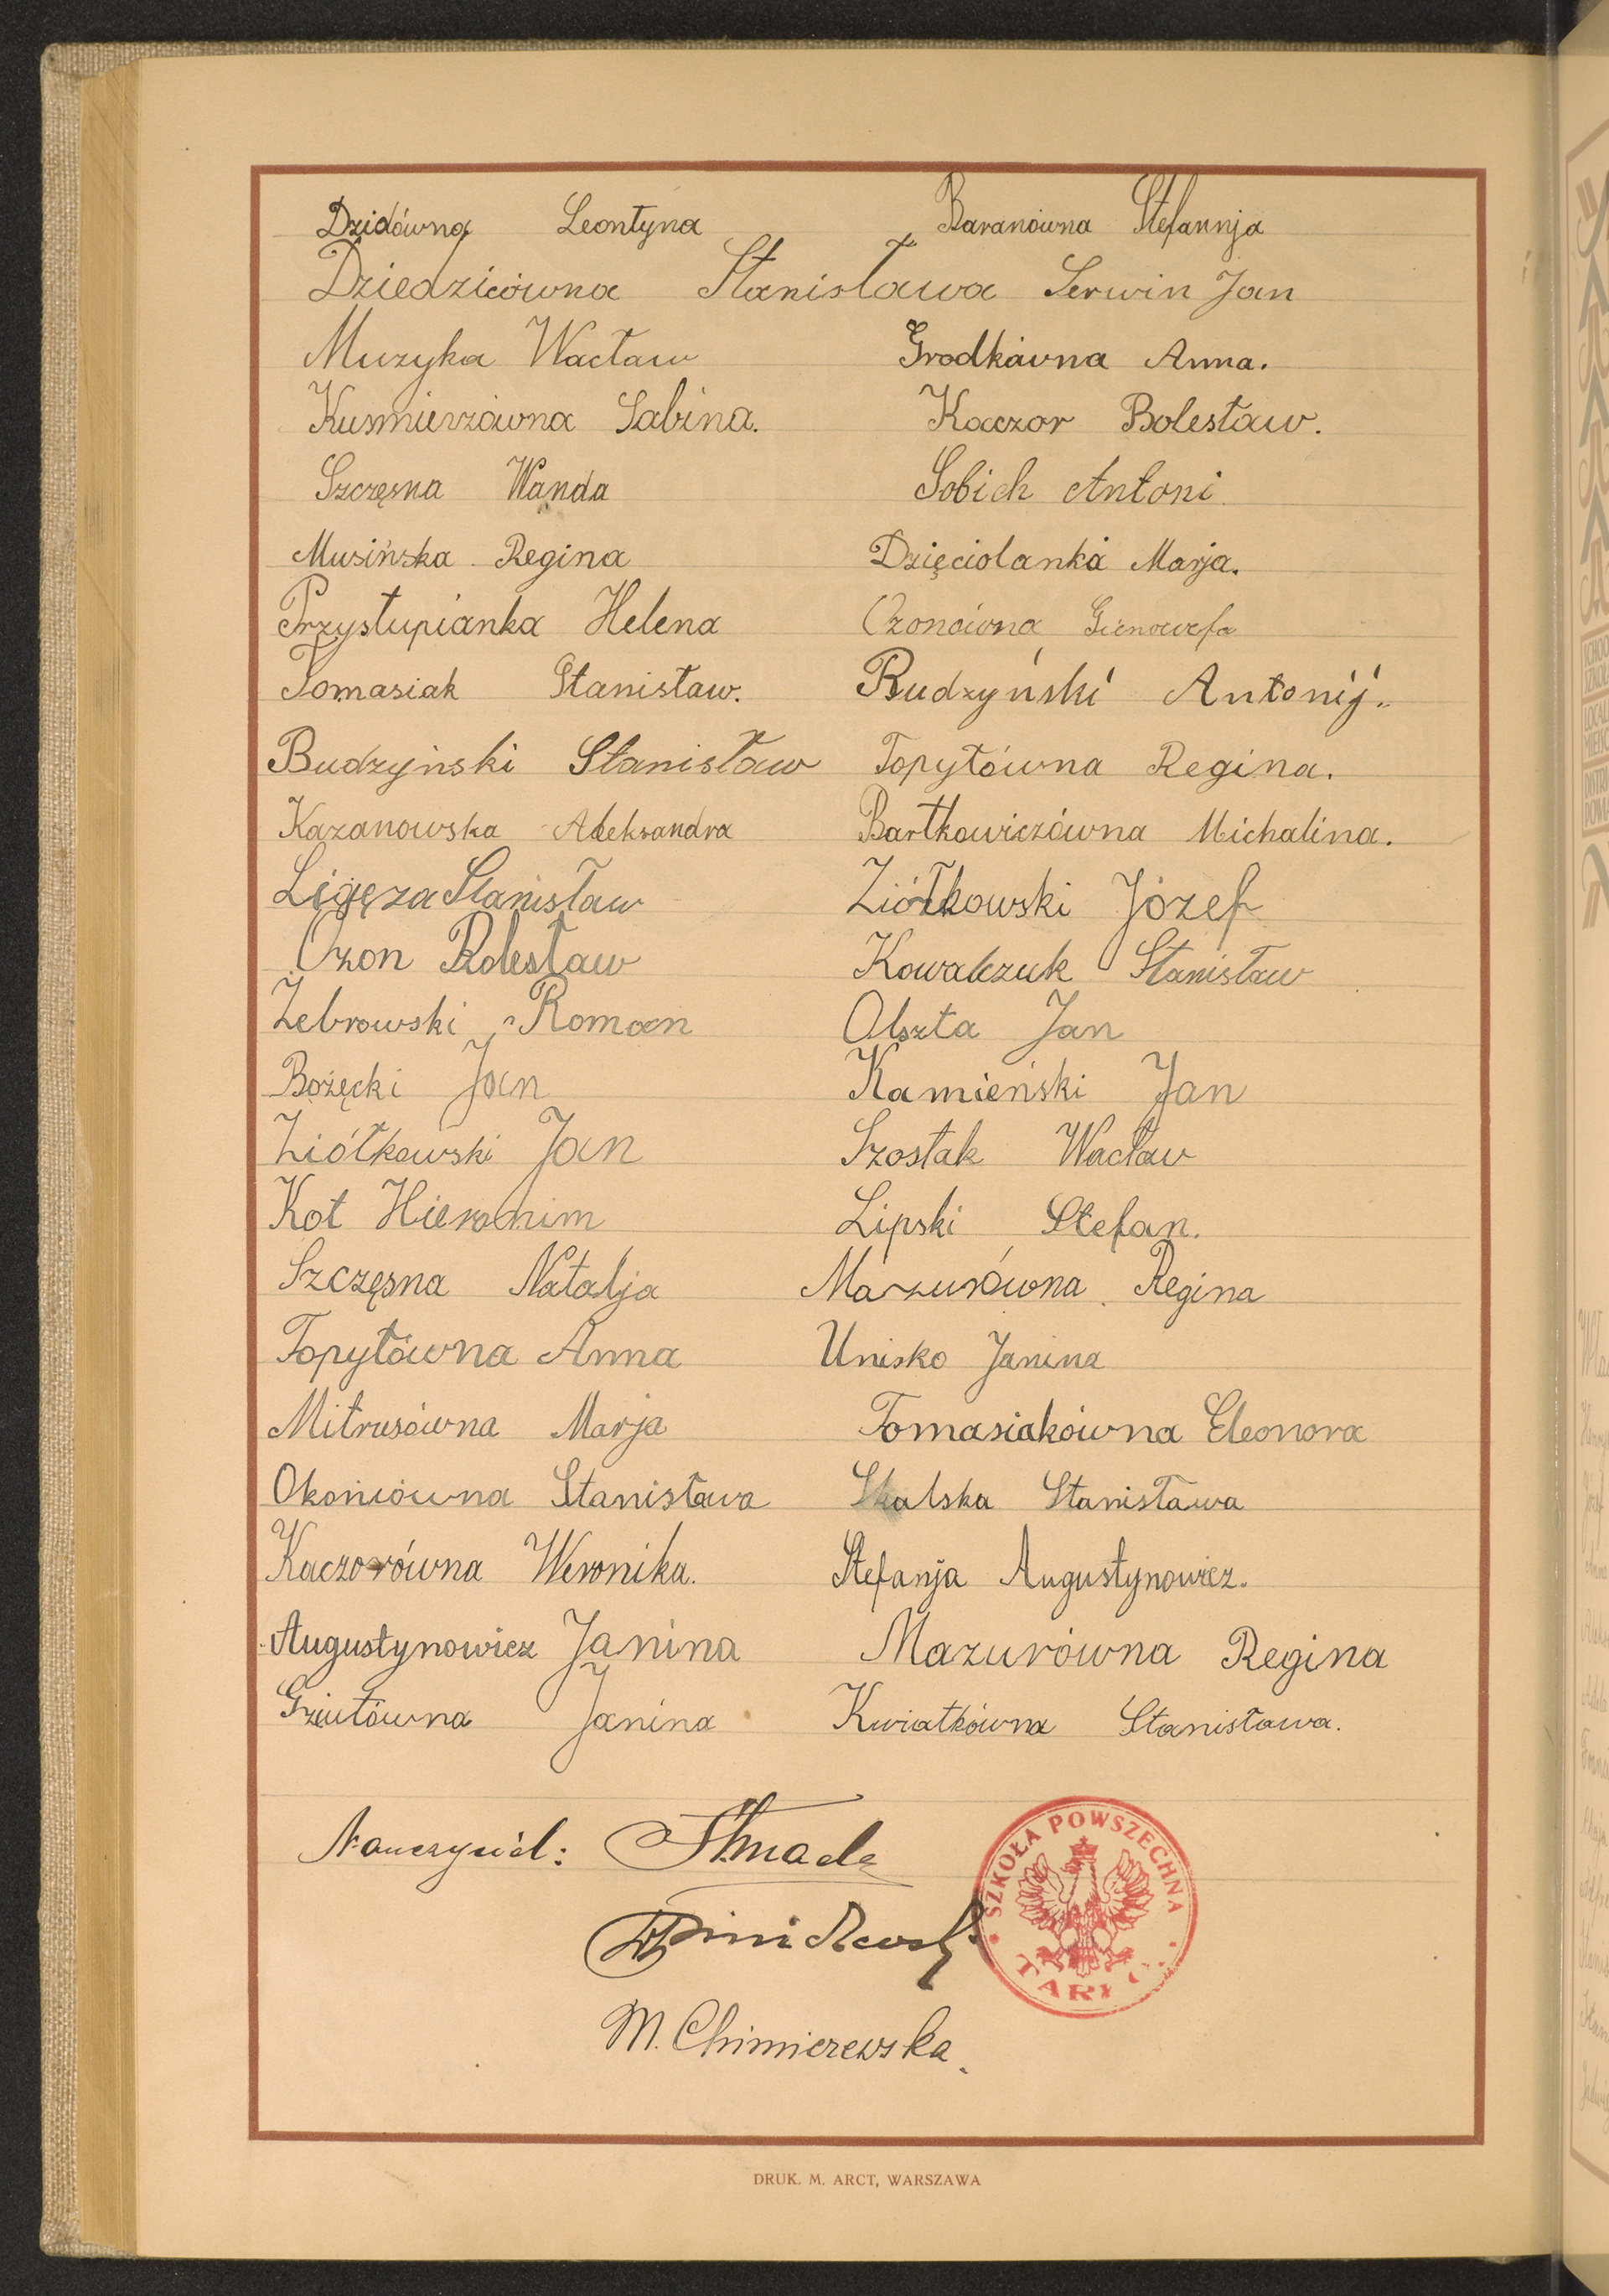 Dzidówna Leontyna Baranówna Stefannja
Dziedzicówna Stanisława Serwin Jan
Muzyka Wacław Grodkówna Anna.
Kusmierzówna Sabina. Kaczor Bolesław.
Szczęsna Wanda Sobich Antoni.
Musińska Regina Dzięciolanka Marja.
Przystupianka Helena Ozonówna Gienowefa
Tomasiak Stanisław. Rudzyński Antonij.
Budzyński Stanisław Topytówna Regina.
Kazanowska Aleksandra Bartkowiczówna Michalina.
Ligęza Stanisław Ziółkowski Józef
Ozon Bolesław Kowalczuk Stanisław
Żebrowski Roman Olszta Jan
Bożęcki Jan Kamieński Jan
Ziółkowski Jan Szostak Wacław
Kot Hieronim Lipski Stefan.
Szczęsna Natalja Mazurówna Regina
Topytówna Anna Unisko Janina
Mitrusówna Marja Tomasiakówna Eleonora
Okoniówna Stanisława Skalska Stanisława
Kaczorówna Weronika. Stefanja Augustynowicz.
Augustynowicz Janina Mazurówna Regina
Janina Kwiatkówna Stanisława.
Nauczyciel:
M. Chimierewska
SZKOŁA POWSZECHNA
DRUK. M. ARCT, WARSZAWA